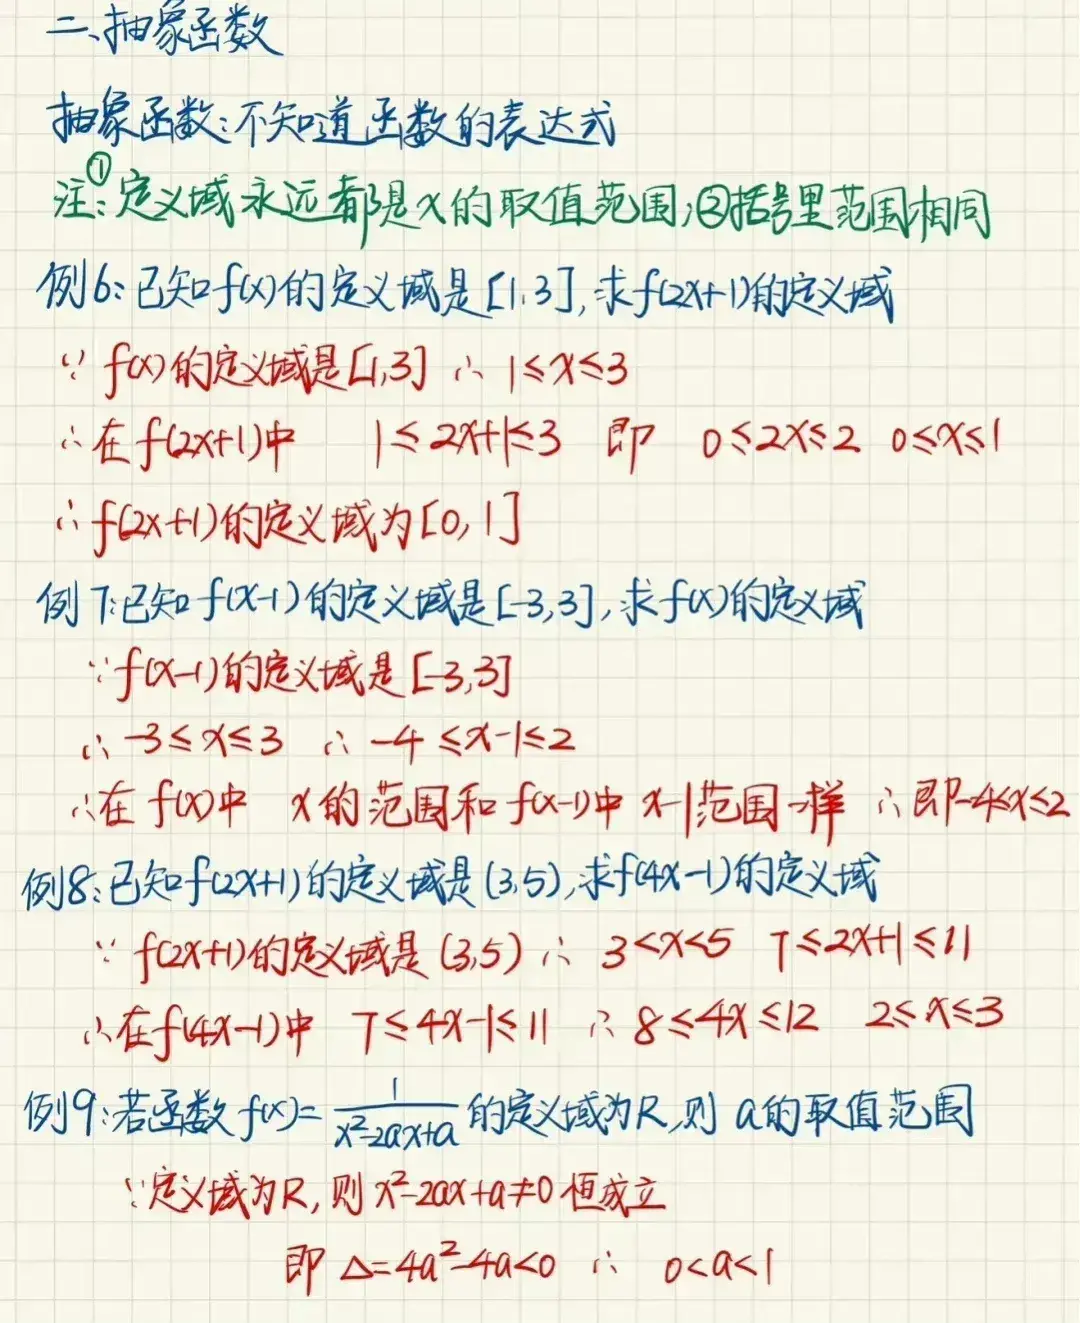 二、抽象函数
抽象函数:不知道函数的表达式
注:①定义域永远都是x的取值范围;②括号里范围相同
例6:已知f(x)的定义域是[1,3],求f(2x+1)的定义域
∵ f(x)的定义域是[1,3] ∴ 1≤x≤3
∴在f(2x+1)中 1≤2x+1≤3 即 0≤2x≤2 0≤x≤1
∴f(2x+1)的定义域为[0,1]
例7:已知f(x-1)的定义域是[-3,3],求f(x)的定义域
∵f(x-1)的定义域是[-3,3]
∴-3≤x≤3 ∴-4≤x-1≤2
∴在f(x)中 x的范围和f(x-1)中x-1范围一样 ∴即-4≤x≤2
例8:已知f(2x+1)的定义域是(3,5),求f(4x-1)的定义域
∵ f(2x+1)的定义域是(3,5) ∴ 3<x<5 7≤2x+1≤11
∴在f(4x-1)中 7≤4x-1≤11 ∴8≤4x≤12 2≤x≤3
例9:若函数f(x)=1/(x²-2ax+a)的定义域为R,则a的取值范围
∵定义域为R,则x²-2ax+a≠0恒成立
即 △=4a²-4a<0 ∴ 0<a<1